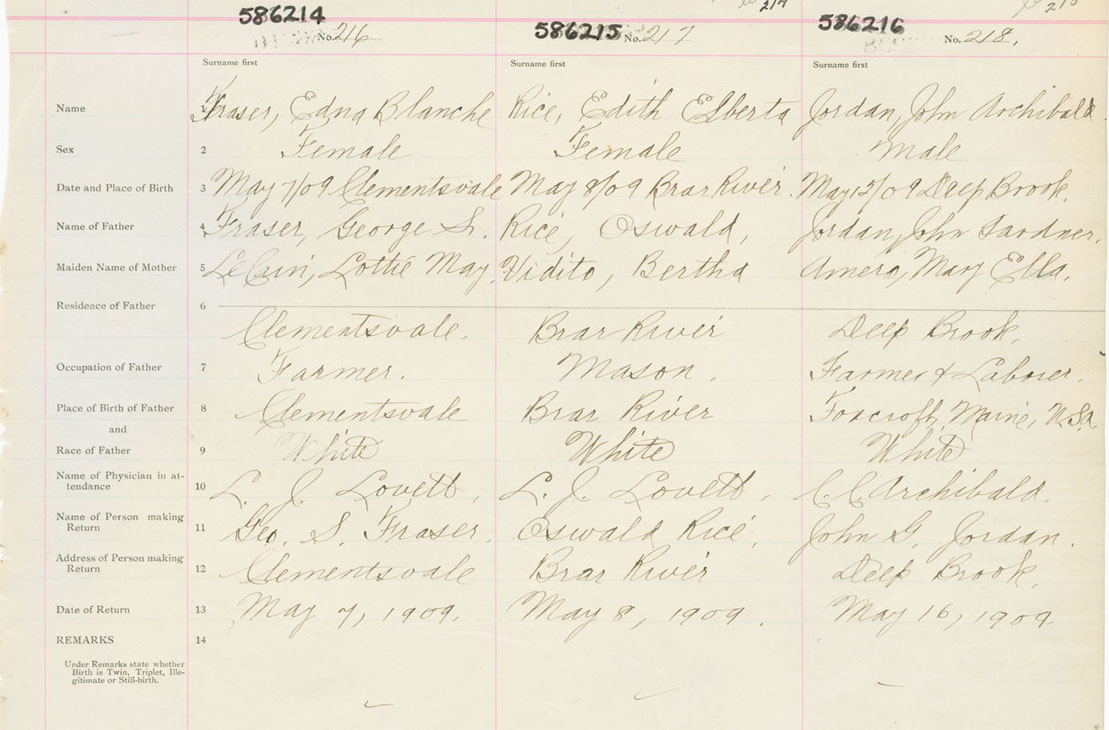 586214 586215 586216
No. 216 No. 217 No. 218.
Surname first Surname first Surname first
Name 1 Fraser, Edna Blanche Rice, Edith Elberta Jordan, John Archibald
Sex 2 Female Female Male
Date and Place of Birth 3 May 7/09 Clementsvale May 8/09 Brar River. May 15/09 Deep Brook.
Name of Father 4 Fraser, George S. Rice, Oswald, Jordan, John Gardner.
Maiden Name of Mother 5 Lottie May. Vidito, Bertha Amero, Mary Ella.
Residence of Father 6
Clementsvale. Brar River Deep Brook.
Occupation of Father 7 Farmer. Mason. Farmer & Laborer.
Place of Birth of Father 8 Clementsvale Brar River Foxcroft, Maine, U.S.A
and
Race of Father 9 White White White
Name of Physician in at-
tendance 10 L. J. Lovett, L. J. Lovett, C. C. Archibald.
Name of Person making
Return 11 Geo. S. Fraser. Oswald Rice, John G. Jordan.
Address of Person making
Return 12 Clementsvale Brar River Deep Brook,
Date of Return 13 May 7, 1909. May 8, 1909. May 16, 1909.
REMARKS 14
Under Remarks state whether
Birth is Twin, Triplet, Ille-
gitimate or Still-birth.